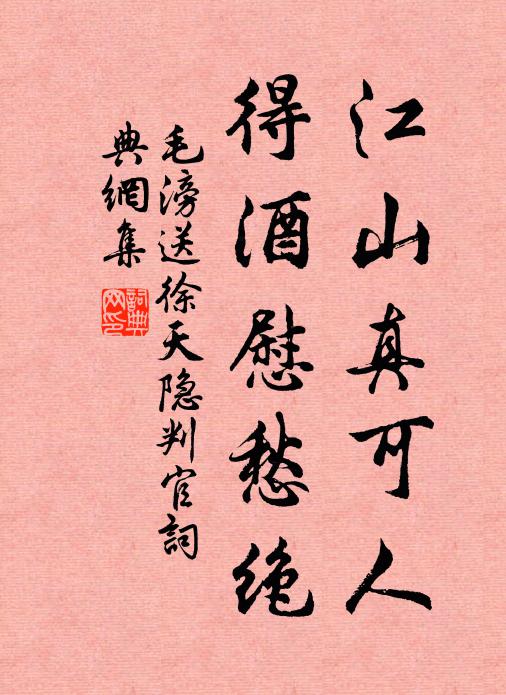 江山真可人
得酒慰愁绝
毛滂送徐天隐判官詞
典網集
詞典网印